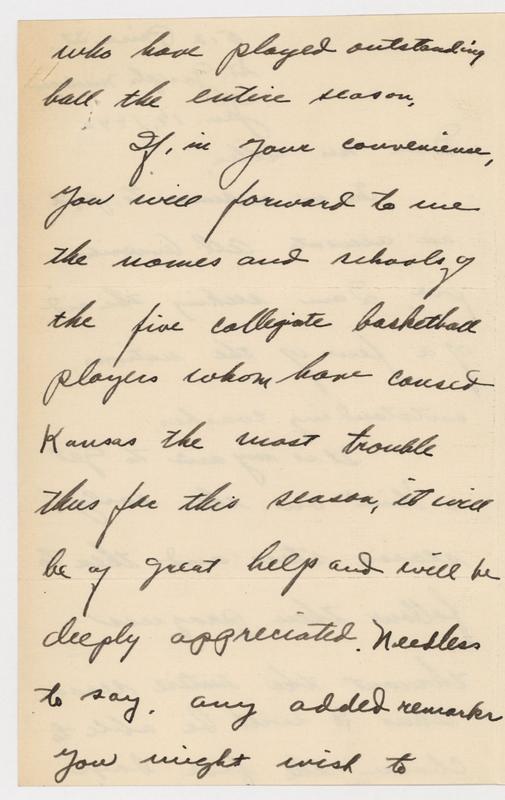 who have played outstanding
ball the entire season.
If, in your convenience,
you will forward to me
the names and schools of
the five collegiate basketball
players whom have caused
Kansas the most trouble
thus far this season, it will
be of great help and will be
deeply appreciated. Needless
to say, any added remarks
you might wish to